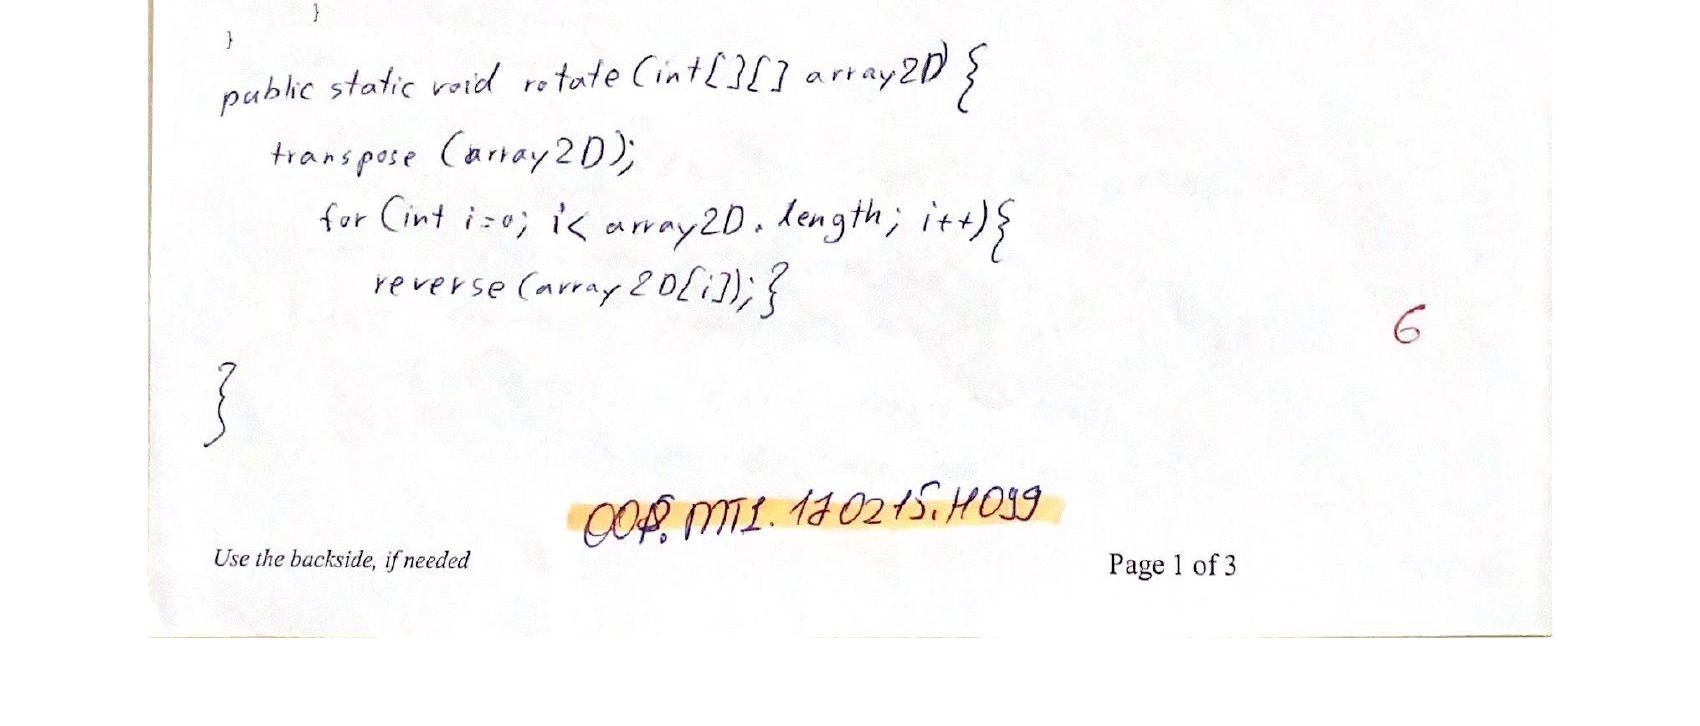 }
}
public static void rotate (int[][] array2D) {
transpose (array2D);
for (int i=0; i< array2D.length; i++){
reverse (array2D[i]);}
6
}
OOP.MT1.170215.H099
Use the backside, if needed
Page 1 of 3